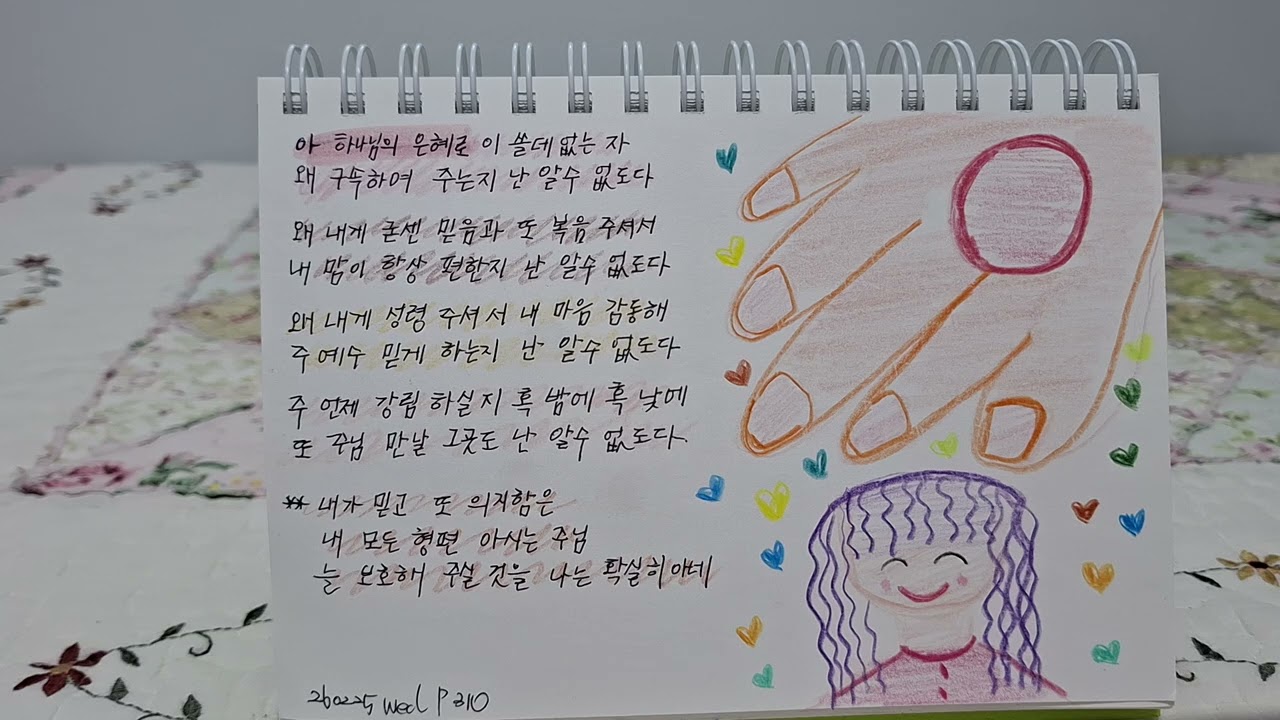 아 하나님의 은혜로 이 쓸데 없는 자
왜 구속하여 주는지 난 알수 없도다
왜 내게 굳센 믿음과 또 복음 주셔서
내 맘이 항상 편한지 난 알수 없도다
왜 내게 성령 주셔서 내 마음 감동해
주 예수 믿게 하는지 난 알수 없도다
주 언제 강림 하실지 혹 밤에 혹 낮에
또 주님 만날 그곳도 난 알수 없도다.
** 내가 믿고 또 의지함은
내 모든 형편 아시는 주님
늘 보호해 주실 것을 나는 확실히 아네
260225 wed P 310